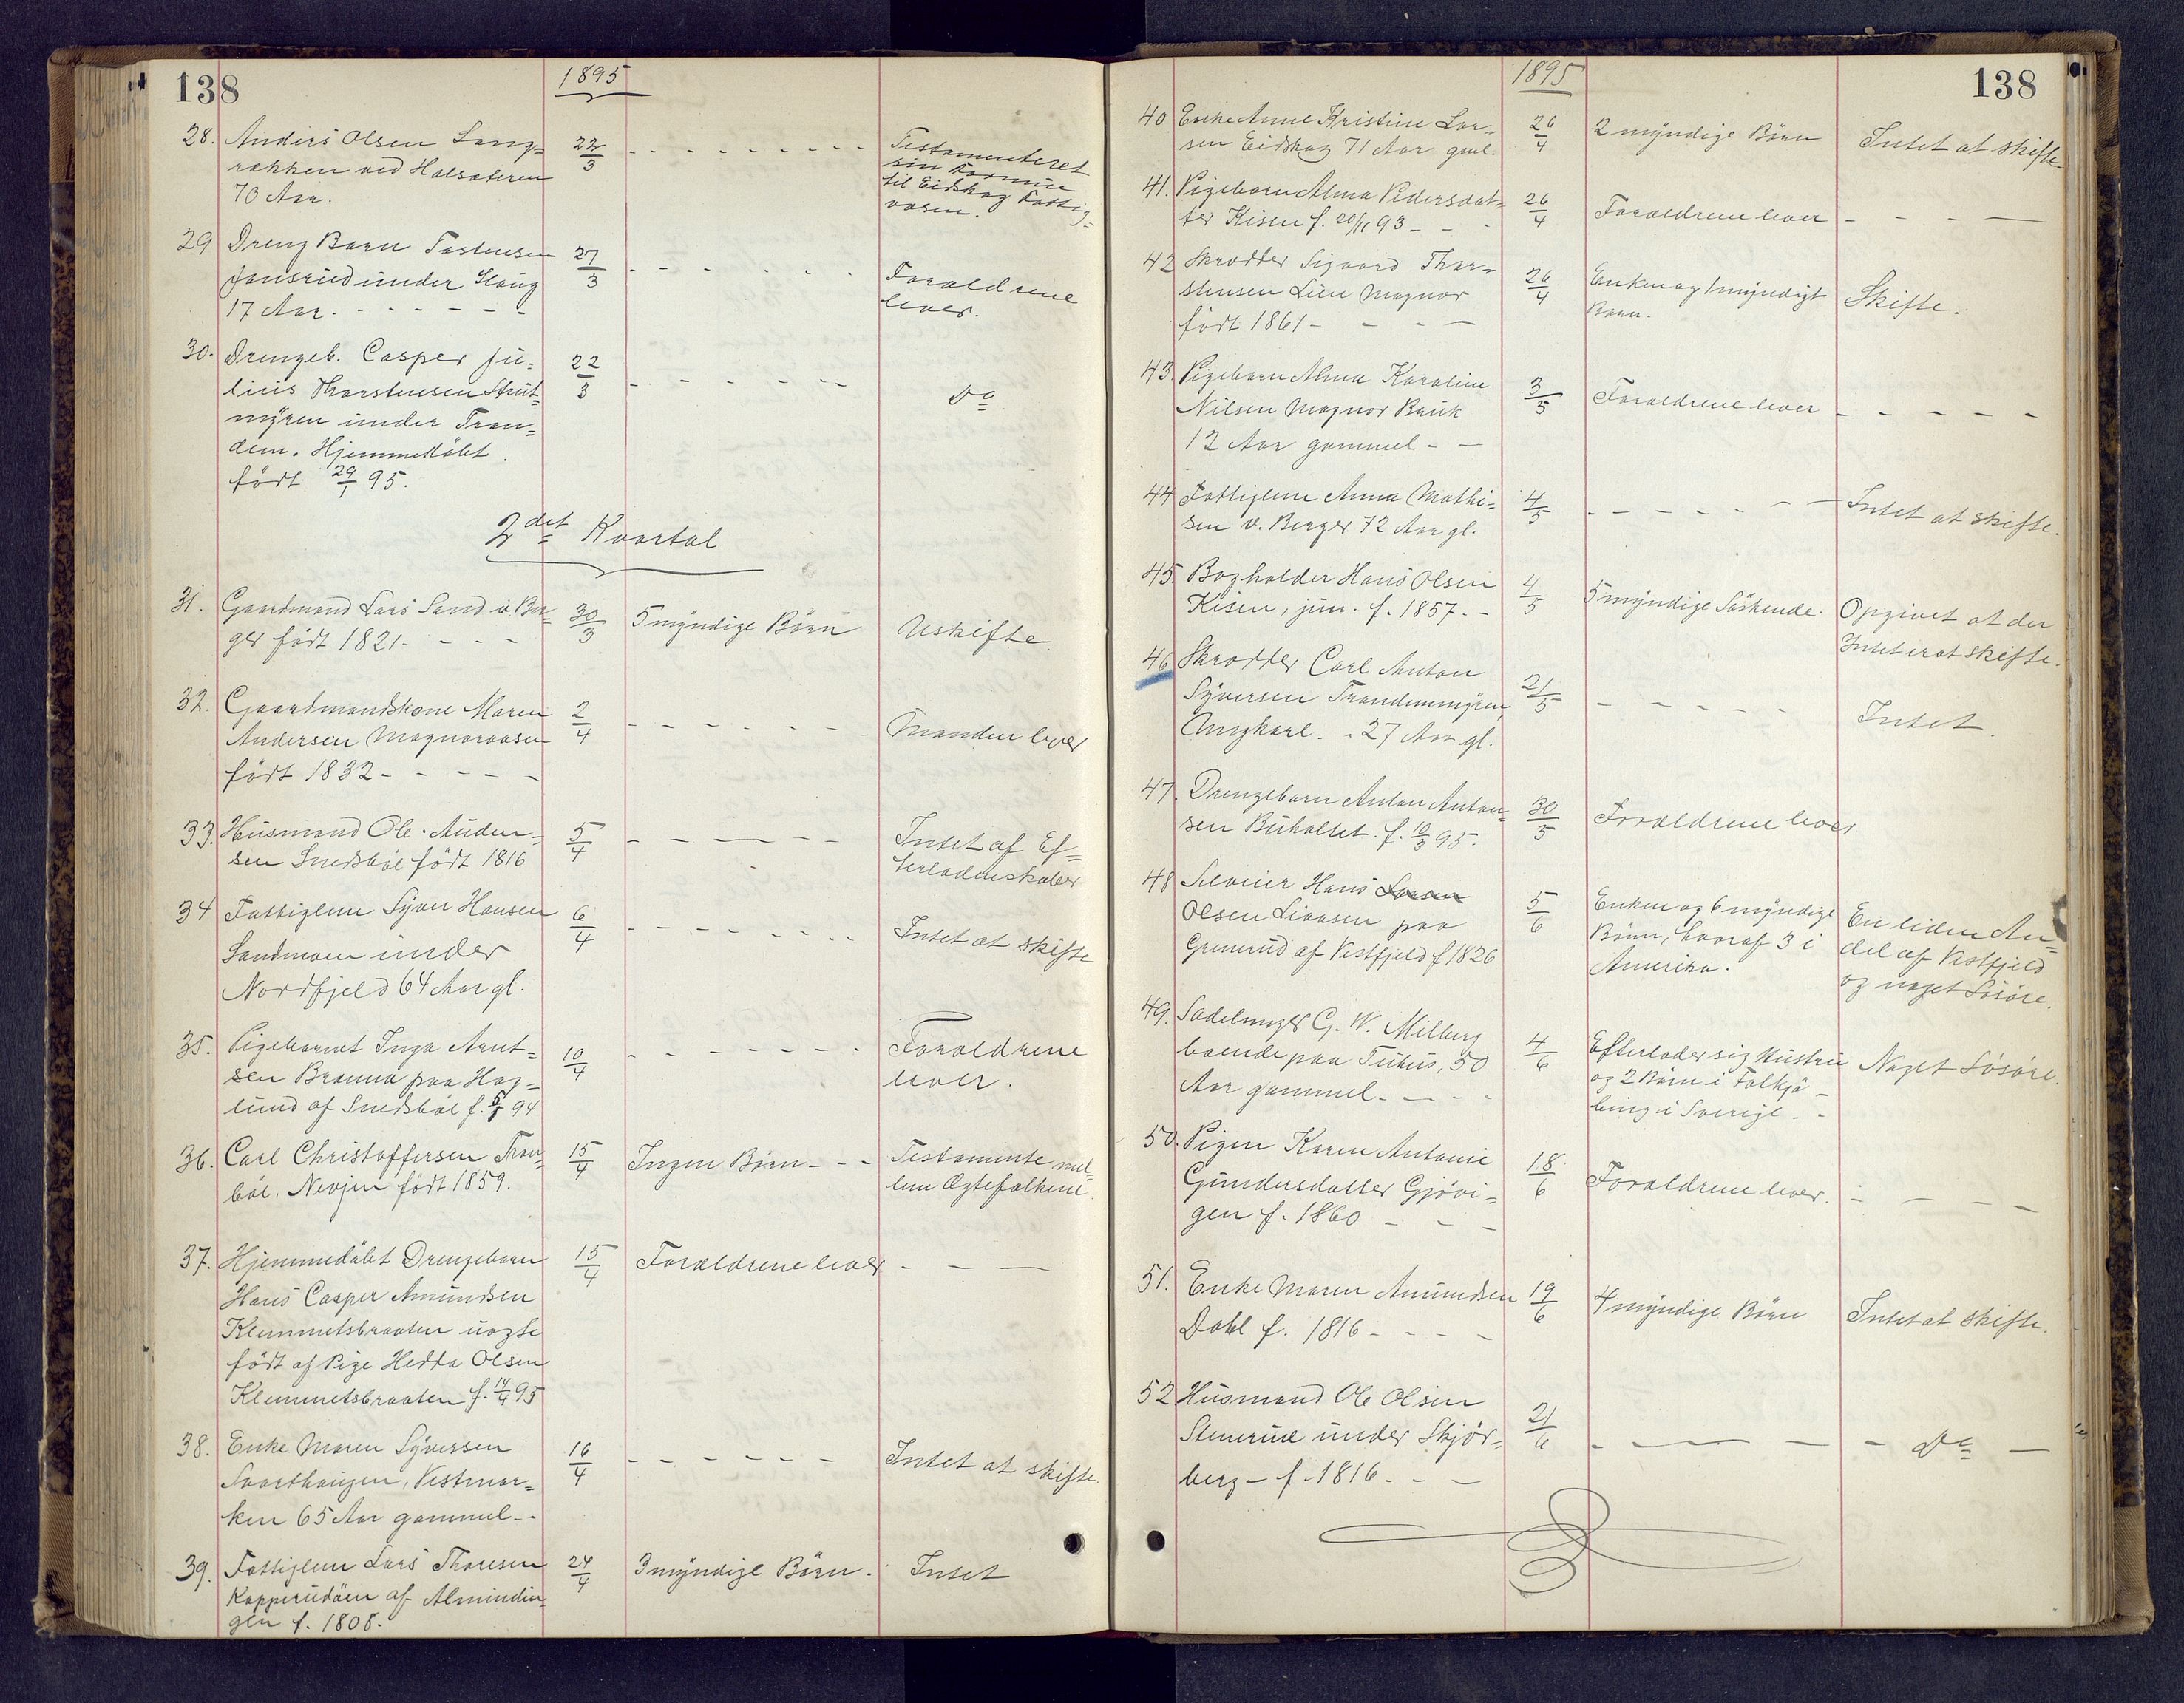 138
1895
28. Anders Olsen Lang= 22/3 - - - - - - - - - Testamenteret
rakken ved Halsæteren sin Formue
70 Aar. til Eidskog Fattig=
væsen.
29 Dreng Barn Fastensen 27/3 - - - - - - - Forældrene
Jonsrud under Haug lever.
17 Aar. - - - - - -
30. Drengeb. Casper Ju= 22/3 - - - - - - Do
lius Thorstensen Strut=
myren under Tran=
dem. Hjemmedøbt.
født 29/1 95.
2det Kvartal
31. Gaardmand Lars Sand i Ber= 30/3 5 myndige Børn Uskifte
ger født 1821. - - -
32. Gaardmandskone Maren 2/4 - - - - - - Manden lever
Andersen Magnoraasen
født 1832 - - - - -
33. Husmand Ole Auden= 5/4 - - - - - Intet af Ef=
sen Snedsbøl født 1816 terladenskaber
34 Fattiglem Syver Hansen 6/4 - - - - - - - - Intet at skifte
Sandmoen under
Nordfjeld 64 Aar gl.
35. Pigebarnet Inga Arnt= 10/4 - - - - - - - Forældrene
sen Branna paa Hag= lever.
lund af Snedsbøl f. 94
36. Carl Christoffersen Tran= 15/4 Ingen Børn - - - Testamente mel=
bøl. Nevjen født 1859. lem Ægtefolkene.
37. Hjemmedøbt Drengebarn 15/4 Forældrene lever - - -
Hans Casper Amundsen
Klemmetsbraaten uægte
født af Pige Hedda Olsen
Klemmetsbraaten f. 14/4 95
38. Enke Maren Syversen 16/4 - - - - - - Intet at skifte.
Svarthaugen, Vestmar=
ken 65 Aar gammel - -
39. Fattiglem Lars Thoresen 24/4 3 myndige Børn. Intet
Kopperudøen af Almindin=
gen f. 1808.
138
1895
40 Enke Anne Kristine Lar= 26/4 2 myndige Børn Intet at skifte
sen Eidskog 71 Aar gml.
41. Pigebarn Alma Pedersdat= 26/4 Forældrene lever - - - -
ter Kisen f. 20/11 93 - - -
42 Skrædder Sigvard Thor= 26/4 Enken og 1 myndigt Skifte.
stensen Lier Magnor Barn.
født 1861 - - - -
43. Pigebarn Alma Karoline 3/5 Forældrene lever - - - - -
Nilsen Magnor Bruk
12 Aar gammel - -
44 Fattiglem Anna Mathi= 4/5 - - - - - - - Intet at skifte.
sen v. Berger 72 Aar gl.
45. Bogholder Hans Olsen 4/5 5 myndige Søskende. Opgivet at der
Kisen, jun. f. 1857. - Intet er at skifte.
46 Skrædder Carl Anton 21/5 - - - - - Intet.
Syversen Trandemmyren,
Ungkarl. - 27 Aar gl.
47. Drengebarn Anton Anton= 30/5 Forældrene lever
sen Buholtet. f. 10/3 95.
48 Hans Larsen 5/6 Enken og 6 myndige En liden An=
Olsen Liaasen paa Børn, hvoraf 3 i del af Vestfjeld
Grenerud af Vestfjeld f 1826 Amerika. og noget Løsøre.
49. Sadelmager G. W. Milberg 4/6 Efterlader sig Hustru Noget Løsøre.
boende paa Tuhus, 50 og 2 Børn i Falkjø=
Aar gammel. - - - bing i Sverige. -
50. Pigen Karen Antonie 18/6 Forældrene lever. - - - -
Gundersdatter Gjøvi=
gen f. 1860 - - -
51. Enke Maren Amundsen 19/6 4 myndige Børn Intet at skifte.
Dahl f. 1816 - - - -
52 Husmand Ole Olsen 21/6 - - - - Do -
Stenerud under Skjør=
berg - f. 1816. - -